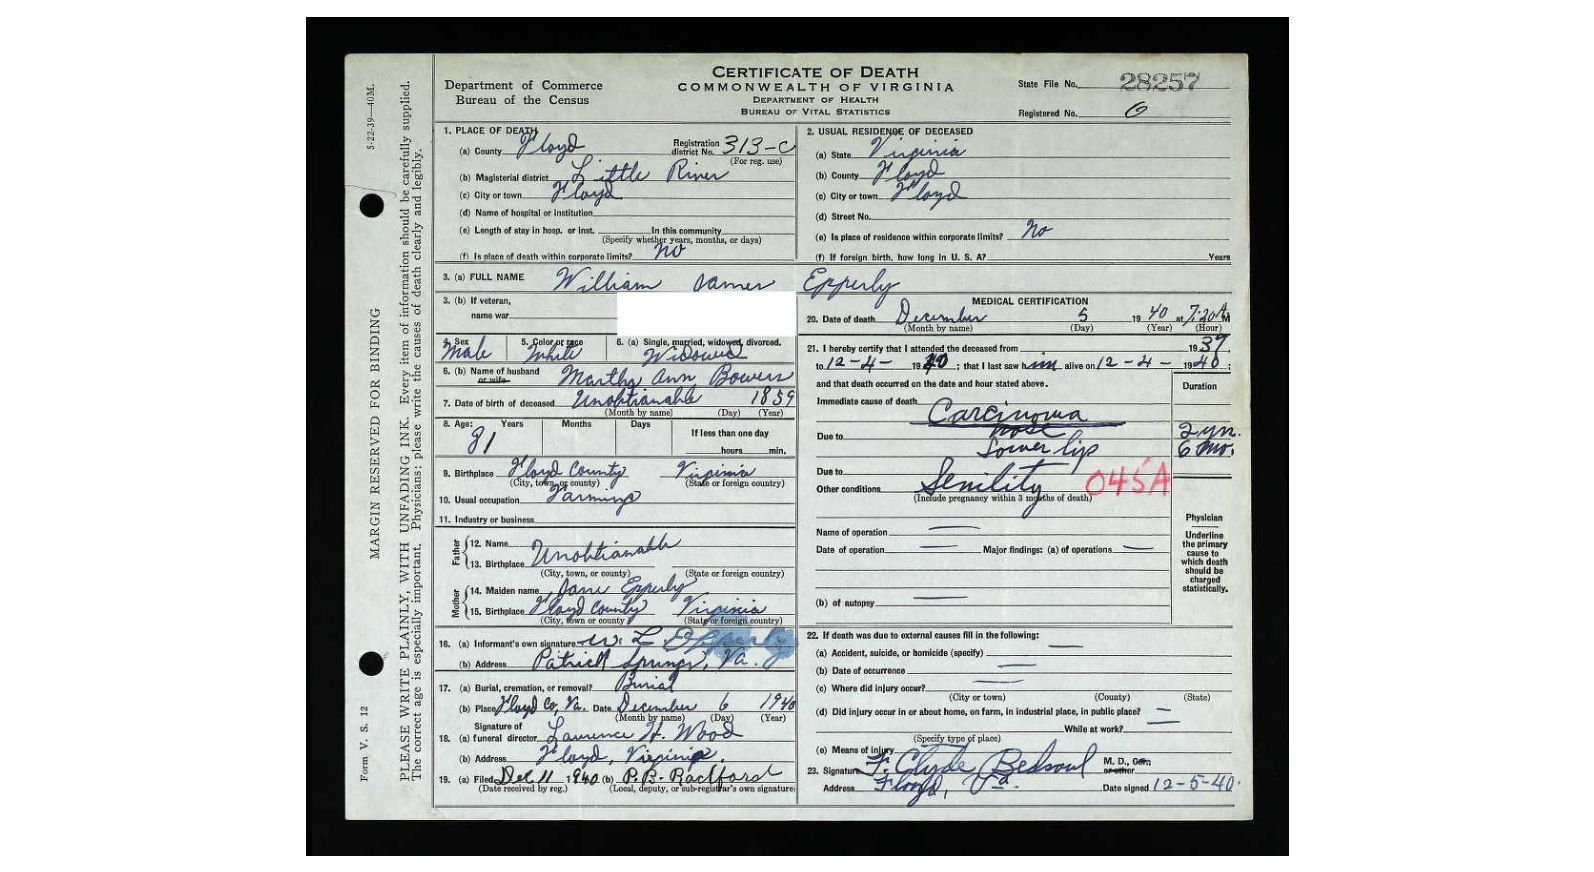 CERTIFICATE OF DEATH
COMMONWEALTH OF VIRGINIA
DEPARTMENT OF HEALTH
BUREAU OF VITAL STATISTICS
Department of Commerce
Bureau of the Census
State File No. 28257
Registered No. 6
5-22-39—40M.
MARGIN RESERVED FOR BINDING
Form V. S. 12
PLEASE WRITE PLAINLY, WITH UNFADING INK. Every item of information should be carefully supplied.
The correct age is especially important. Physicians: please write the causes of death clearly and legibly.
1. PLACE OF DEATH
(a) County Floyd Registration district No. 313-C
(For reg. use)
(b) Magisterial district Little River
(c) City or town Floyd
(d) Name of hospital or institution
(e) Length of stay in hosp. or inst. In this community
(Specify whether years, months, or days)
(f) Is place of death within corporate limits? No
2. USUAL RESIDENCE OF DECEASED
(a) State Virginia
(b) County Floyd
(c) City or town Floyd
(d) Street No.
(e) Is place of residence within corporate limits? No
(f) If foreign birth, how long in U. S. A? Years
3. (a) FULL NAME William James Epperly
3. (b) If veteran,
name war
4. Sex Male 5. Color or race White 6. (a) Single, married, widowed, divorced. Widowed
6. (b) Name of husband or wife Martha Ann Bowers
7. Date of birth of deceased Unobtianable 1859
(Month by name) (Day) (Year)
8. Age: Years Months Days If less than one day
81 hours min.
9. Birthplace Floyd County Virginia
(City, town, or county) (State or foreign country)
10. Usual occupation Farming
11. Industry or business
Father
12. Name Unobtianable
13. Birthplace
(City, town, or county) (State or foreign country)
Mother
14. Maiden name Jane Epperly
15. Birthplace Floyd County Virginia
(City, town or county) (State or foreign country)
16. (a) Informant's own signature W. L. Epperly
(b) Address Patrick Springs, Va.
17. (a) Burial, cremation, or removal? Burial
(b) Place Floyd Co, Va. Date December 6 1940
(Month by name) (Day) (Year)
18. (a) Signature of funeral director Lawrence H. Wood
(b) Address Floyd, Virginia.
19. (a) Filed Dec 11 1940 (b) P. B. Radford
(Date received by reg.) (Local, deputy, or sub-registrar's own signature)
MEDICAL CERTIFICATION
20. Date of death December 5 1940 at 7:20 A M
(Month by name) (Day) (Year) (Hour)
21. I hereby certify that I attended the deceased from 1939
to 12-4- 1940; that I last saw him alive on 12-4- 1940;
and that death occurred on the date and hour stated above.
Duration
Immediate cause of death Carcinoma
Due to nose 2 yr.
Lower lip 6 mo.
Due to
Other conditions Senility 045A
(Include pregnancy within 3 months of death)
Name of operation
Date of operation Major findings: (a) of operations
(b) of autopsy
Physician
Underline
the primary
cause to
which death
should be
charged
statistically.
22. If death was due to external causes fill in the following:
(a) Accident, suicide, or homicide (specify)
(b) Date of occurrence
(c) Where did injury occur?
(City or town) (County) (State)
(d) Did injury occur in or about home, on farm, in industrial place, in public place?
While at work?
(Specify type of place)
(e) Means of injury
23. Signature F. Clyde Bedsaul M. D., Cor., or other
Address Floyd, Va. Date signed 12-5-40.